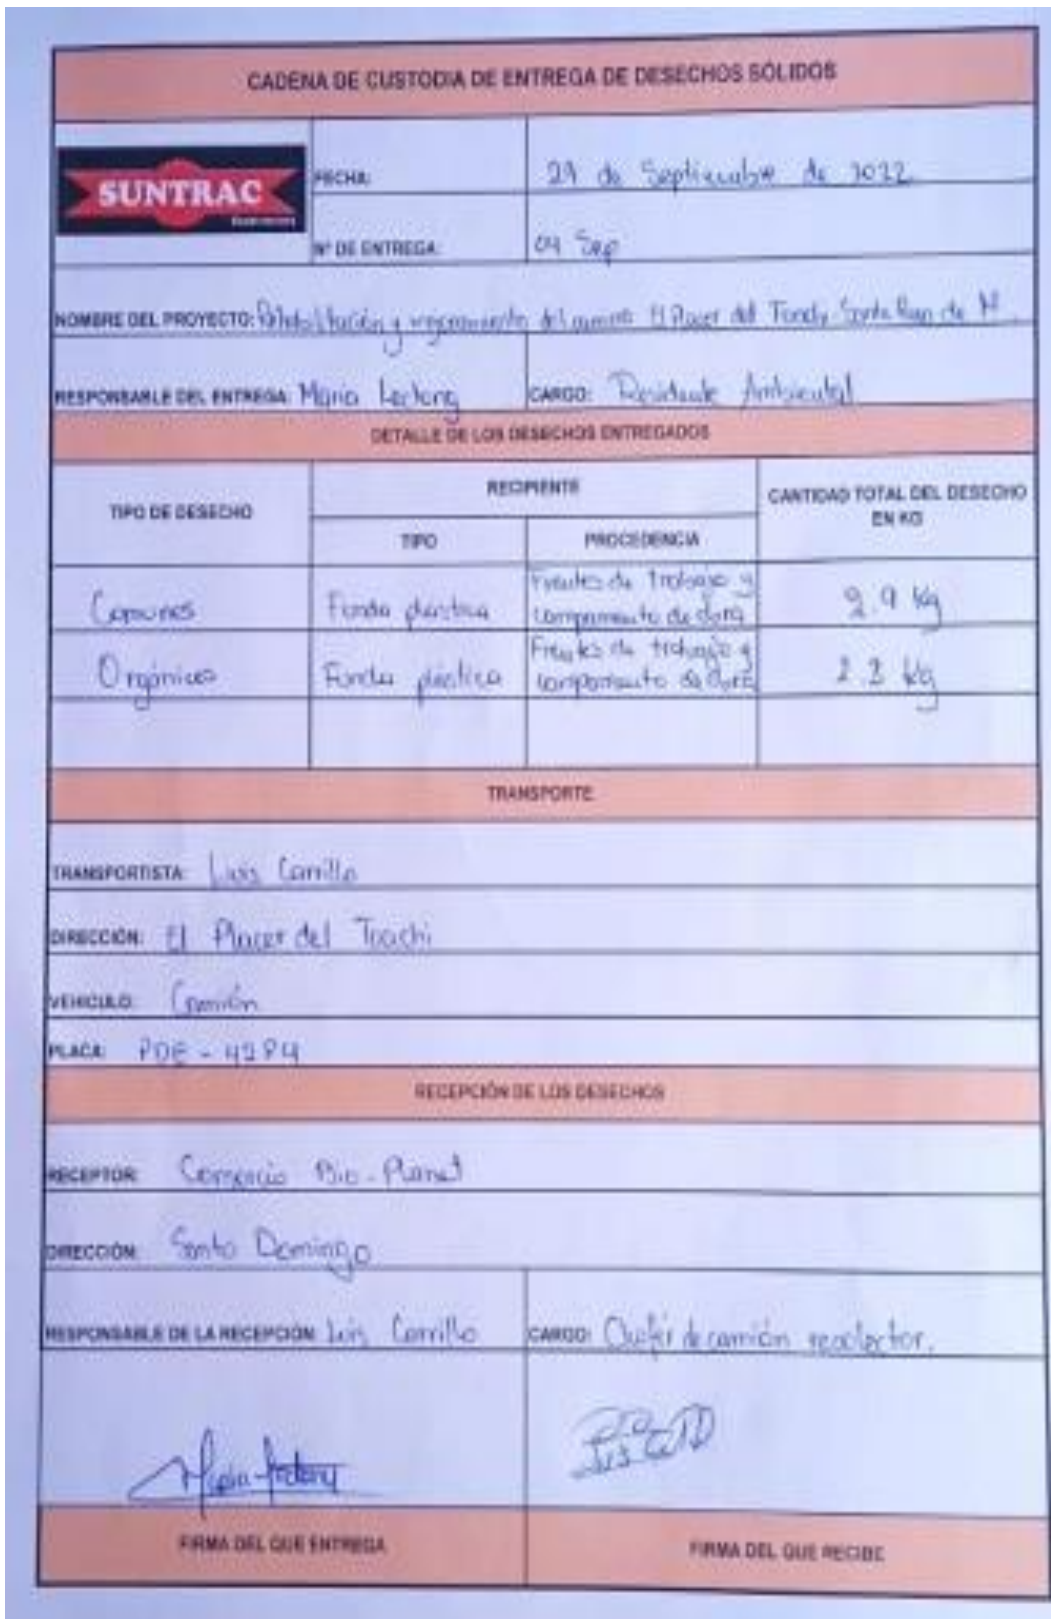 CADENA DE CUSTODIA DE ENTREGA DE DESECHOS SÓLIDOS
SUNTRAC
FECHA: de Septiembre de 2022
N° DE ENTREGA: 04 Sep
NOMBRE DEL PROYECTO: Rehabilitación y mejoramiento del camino El Placer del Santa Rosa de M.
RESPONSABLE DEL ENTREGA: María CARGO: Residente Ambiental
DETALLE DE LOS DESECHOS ENTREGADOS
TIPO DE DESECHO
RECIPIENTE
CANTIDAD TOTAL DEL DESECHO
EN KG
TIPO
PROCEDENCIA
Comunes Funda plástica Frentes de trabajo y
campamento de obra 2.9 kg
Orgánicos Funda plástica Frentes de trabajo y
campamento de obra kg
TRANSPORTE
TRANSPORTISTA: Luis Carrillo
DIRECCIÓN: El Placer del Toachi
VEHICULO: Camión
PLACA: PDE -
RECEPCIÓN DE LOS DESECHOS
RECEPTOR: Comercio Bio-Planet
DIRECCIÓN: Santo Domingo
RESPONSABLE DE LA RECEPCIÓN: Luis Carrillo CARGO: Chofer de camión recolector.
FIRMA DEL QUE ENTREGA
FIRMA DEL QUE RECIBE